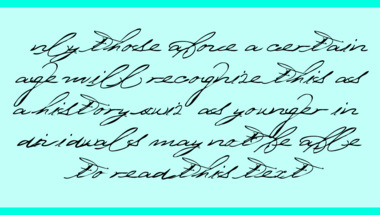 nly those above a certain
age will recognize this as
a history quiz as younger in
dividuals may not be able
to read this text